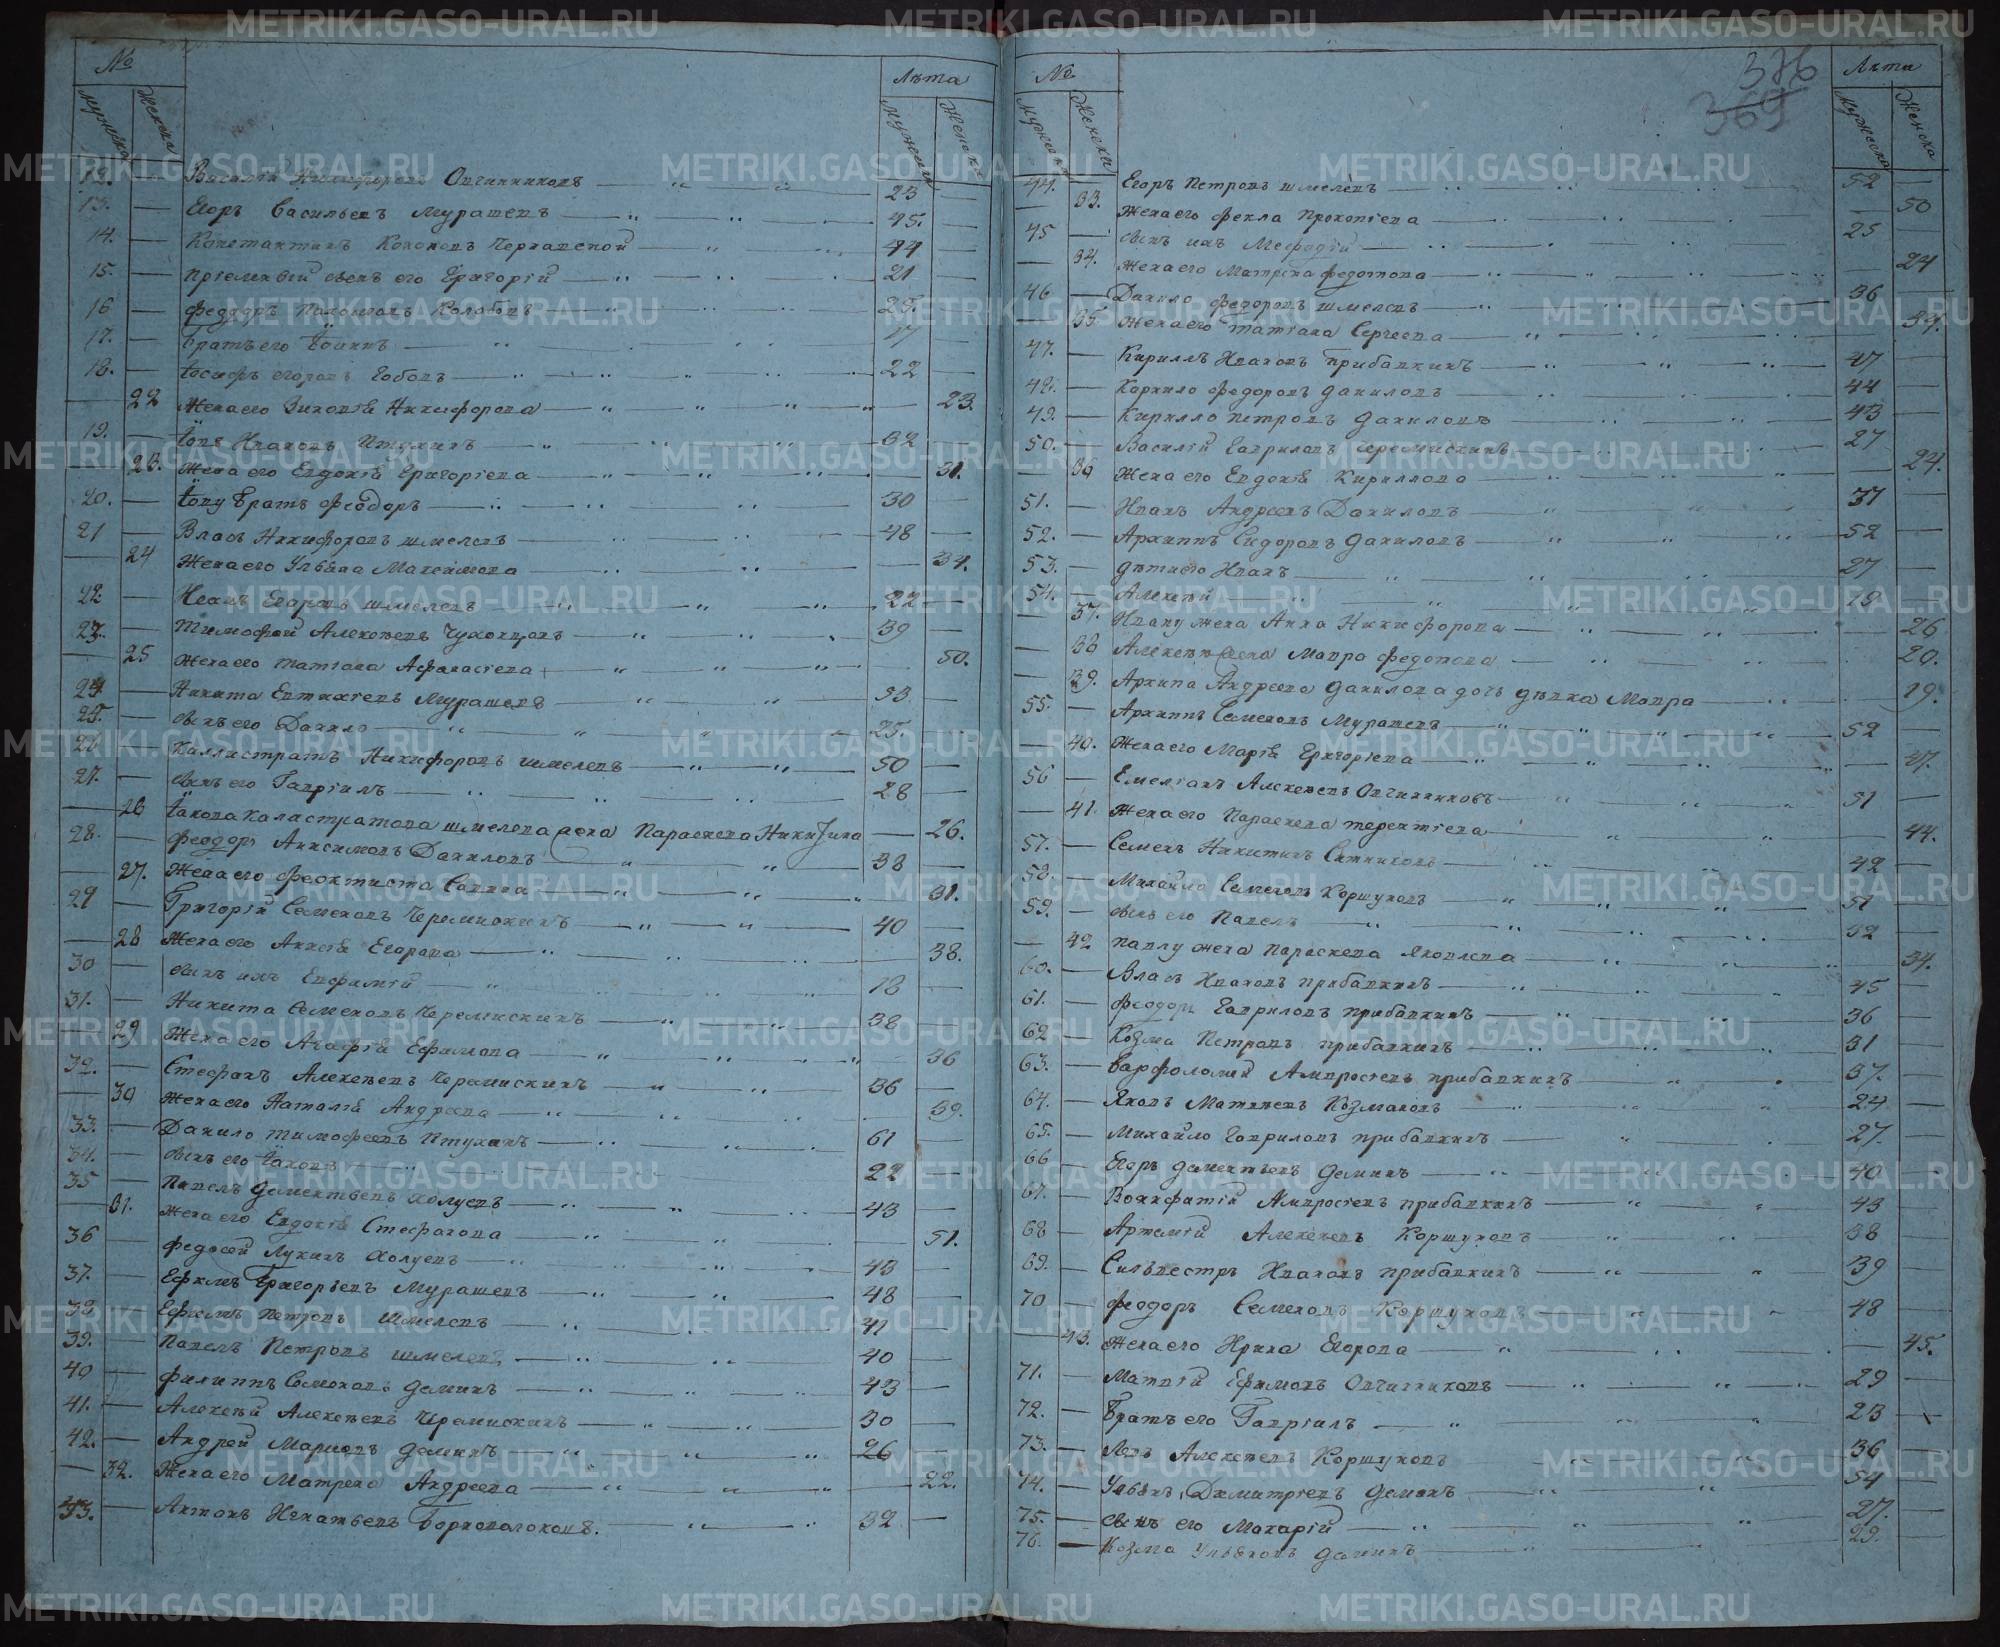 №
Лѣта
мужеска
Женска
мужеска
Женска
12. — Василій Никифоровъ Овчинниковъ — 23 —
13. — Егоръ Васильевъ Мурашевъ — 45. —
14. — Константинъ Кононовъ — 44 —
15. — Пріемный сынъ его Григорій — 21 —
16 — Федоръ — 25. —
17. — Братъ его Іоаннъ — 17 —
18. — Іосифъ Егоровъ — 22 —
— 22 Жена его Зиновія Никифорова — 23.
19. — Іовъ Ивановъ Птухинъ — 32 —
— 23. Жена его Евдокія Григоріева — 31.
20. — Іову братъ Феодоръ — 30 —
21 — Власъ Никифоровъ Шмелевъ — 48 —
— 24 Жена его Ульяна Максимова — 34.
22. — Егоровъ Шмелевъ — 22 —
23. — Тимофей Алексѣевъ — 39 —
— 25 Жена его Татіана Афанасіева — 50.
24 — Никита Евтихіевъ Мурашевъ — 53 —
25. — сынъ его Данило — 25. —
26 Каллистратъ Никифоровъ Шмелевъ — 50 —
27. — сынъ его Гавріилъ — 28 —
— 26 Іакова Каластратова Шмелева жена Параскева Никитина — 26.
28. — Феодоръ Анисимовъ Даниловъ — 38 —
— 27. Жена его Феоктиста Савина — 31.
29 — Григорій Семеновъ Черемискинъ — 40 —
— 28 Жена его Анисія Егорова — 38.
30 — сынъ ихъ Евфимій — 18 —
31. — Никита Семеновъ Черемискинъ — 38 —
— 29 Жена его Агафія Ефимова — 36
32. — Стефанъ Алексѣевъ Черемискинъ — 36 —
— 30 Жена его Наталія Андреева — 39.
33. — Данило Тимофеевъ Птухинъ — 61 —
34. — сынъ его Іаковъ — 22 —
35 — Павелъ Дементьевъ Холуевъ — 43 —
— 31. Жена его Евдокія Стефанова — 51.
36 — Федосей Лукинъ Холуевъ — 43 —
37. — Ефимъ Григорьевъ Мурашевъ — 48 —
38. — Ефимъ Петровъ Шмелевъ — 41 —
39. — Павелъ Петровъ Шмелевъ — 40 —
40 — Филиппъ Семеновъ Деминъ — 43 —
41. — Алексѣй Алексѣевъ Черемискинъ — 30 —
42. — Андрей Деминъ — 26 —
— 32. Жена его Матрена Андреева — 22.
43. — Антонъ Игнатьевъ — 32 —
376
369
№
Лѣта
мужеска
Женска
мужеска
Женска
44. — Егоръ Петровъ Шмелевъ — 52 —
— 33. Жена его Фекла Прокопіева — 50
45 — сынъ ихъ Мефодій — 25 —
— 34. Жена его Матрена Федотова — 24
46 — Данило Федоровъ Шмелевъ — 36 —
— 35. Жена его Татіана Сергеева — 34.
47. — Кириллъ Ивановъ Прибавкинъ — 47 —
48. — Корнило Федоровъ Даниловъ — 44 —
49. — Кирилло Петровъ Даниловъ — 43 —
50. — Василій Гавриловъ Черемискинъ — 27 —
— 36 Жена его Евдокія Кириллова — 24.
51. — Иванъ Андреевъ Даниловъ — 31 —
52. — Архиппъ Сидоровъ Даниловъ — 52 —
53. — дѣти его Иванъ — 27 —
54. — Алексѣй — 19 —
— 37. Ивану жена Анна Никифорова — 26
— 38 Алексѣю жена Мавра Федотова — 20.
— 39. Архипа Андреева Данилова дочь дѣвка Мавра — 19.
55. — Архиппъ Семеновъ Мурашевъ — 52 —
— 40. Жена его Марія Григоріева — 47.
56 — Емеліанъ Алексѣевъ Овчинниковъ — 51 —
— 41. Жена его Параскева Терентіева — 44.
57. — Семенъ Никитинъ Ситниковъ — 42 —
58. — Михайло Семеновъ Коршуновъ — 51 —
59. — сынъ его Павелъ — 32 —
— 42 Павлу жена Параскева Яковлева — 34.
60. — Власъ Ивановъ Прибавкинъ — 45 —
61. — Феодоръ Гавриловъ Прибавкинъ — 36 —
62 — Козма Петровъ Прибавкинъ — 31 —
63. — Варфоломей Амвросіевъ Прибавкинъ — 37. —
64. — Яковъ Матвѣевъ — 24 —
65. — Михайло Гавриловъ Прибавкинъ — 27. —
66 — Егоръ Дементьевъ Деминъ — 40 —
67. — Вонифатій Амвросіевъ Прибавкинъ — 43 —
68 — Артемій Алексѣевъ Коршуновъ — 38 —
69. — Сильвестръ Ивановъ Прибавкинъ — 39 —
70 — Феодоръ Семеновъ Коршуновъ — 48 —
— 43. Жена его Ирина Егорова — 45.
71. — Матвій Ефимовъ Овчинниковъ — 29 —
72. — Братъ его Гавріилъ — 23 —
73. — Левъ Алексѣевъ Коршуновъ — 36 —
74. — Ульянъ Димитріевъ Деминъ — 54 —
75. — сынъ его Макарій — 27. —
76. — Козма Ульяновъ Деминъ — 29. —
METRIKI.GASO-URAL.RU